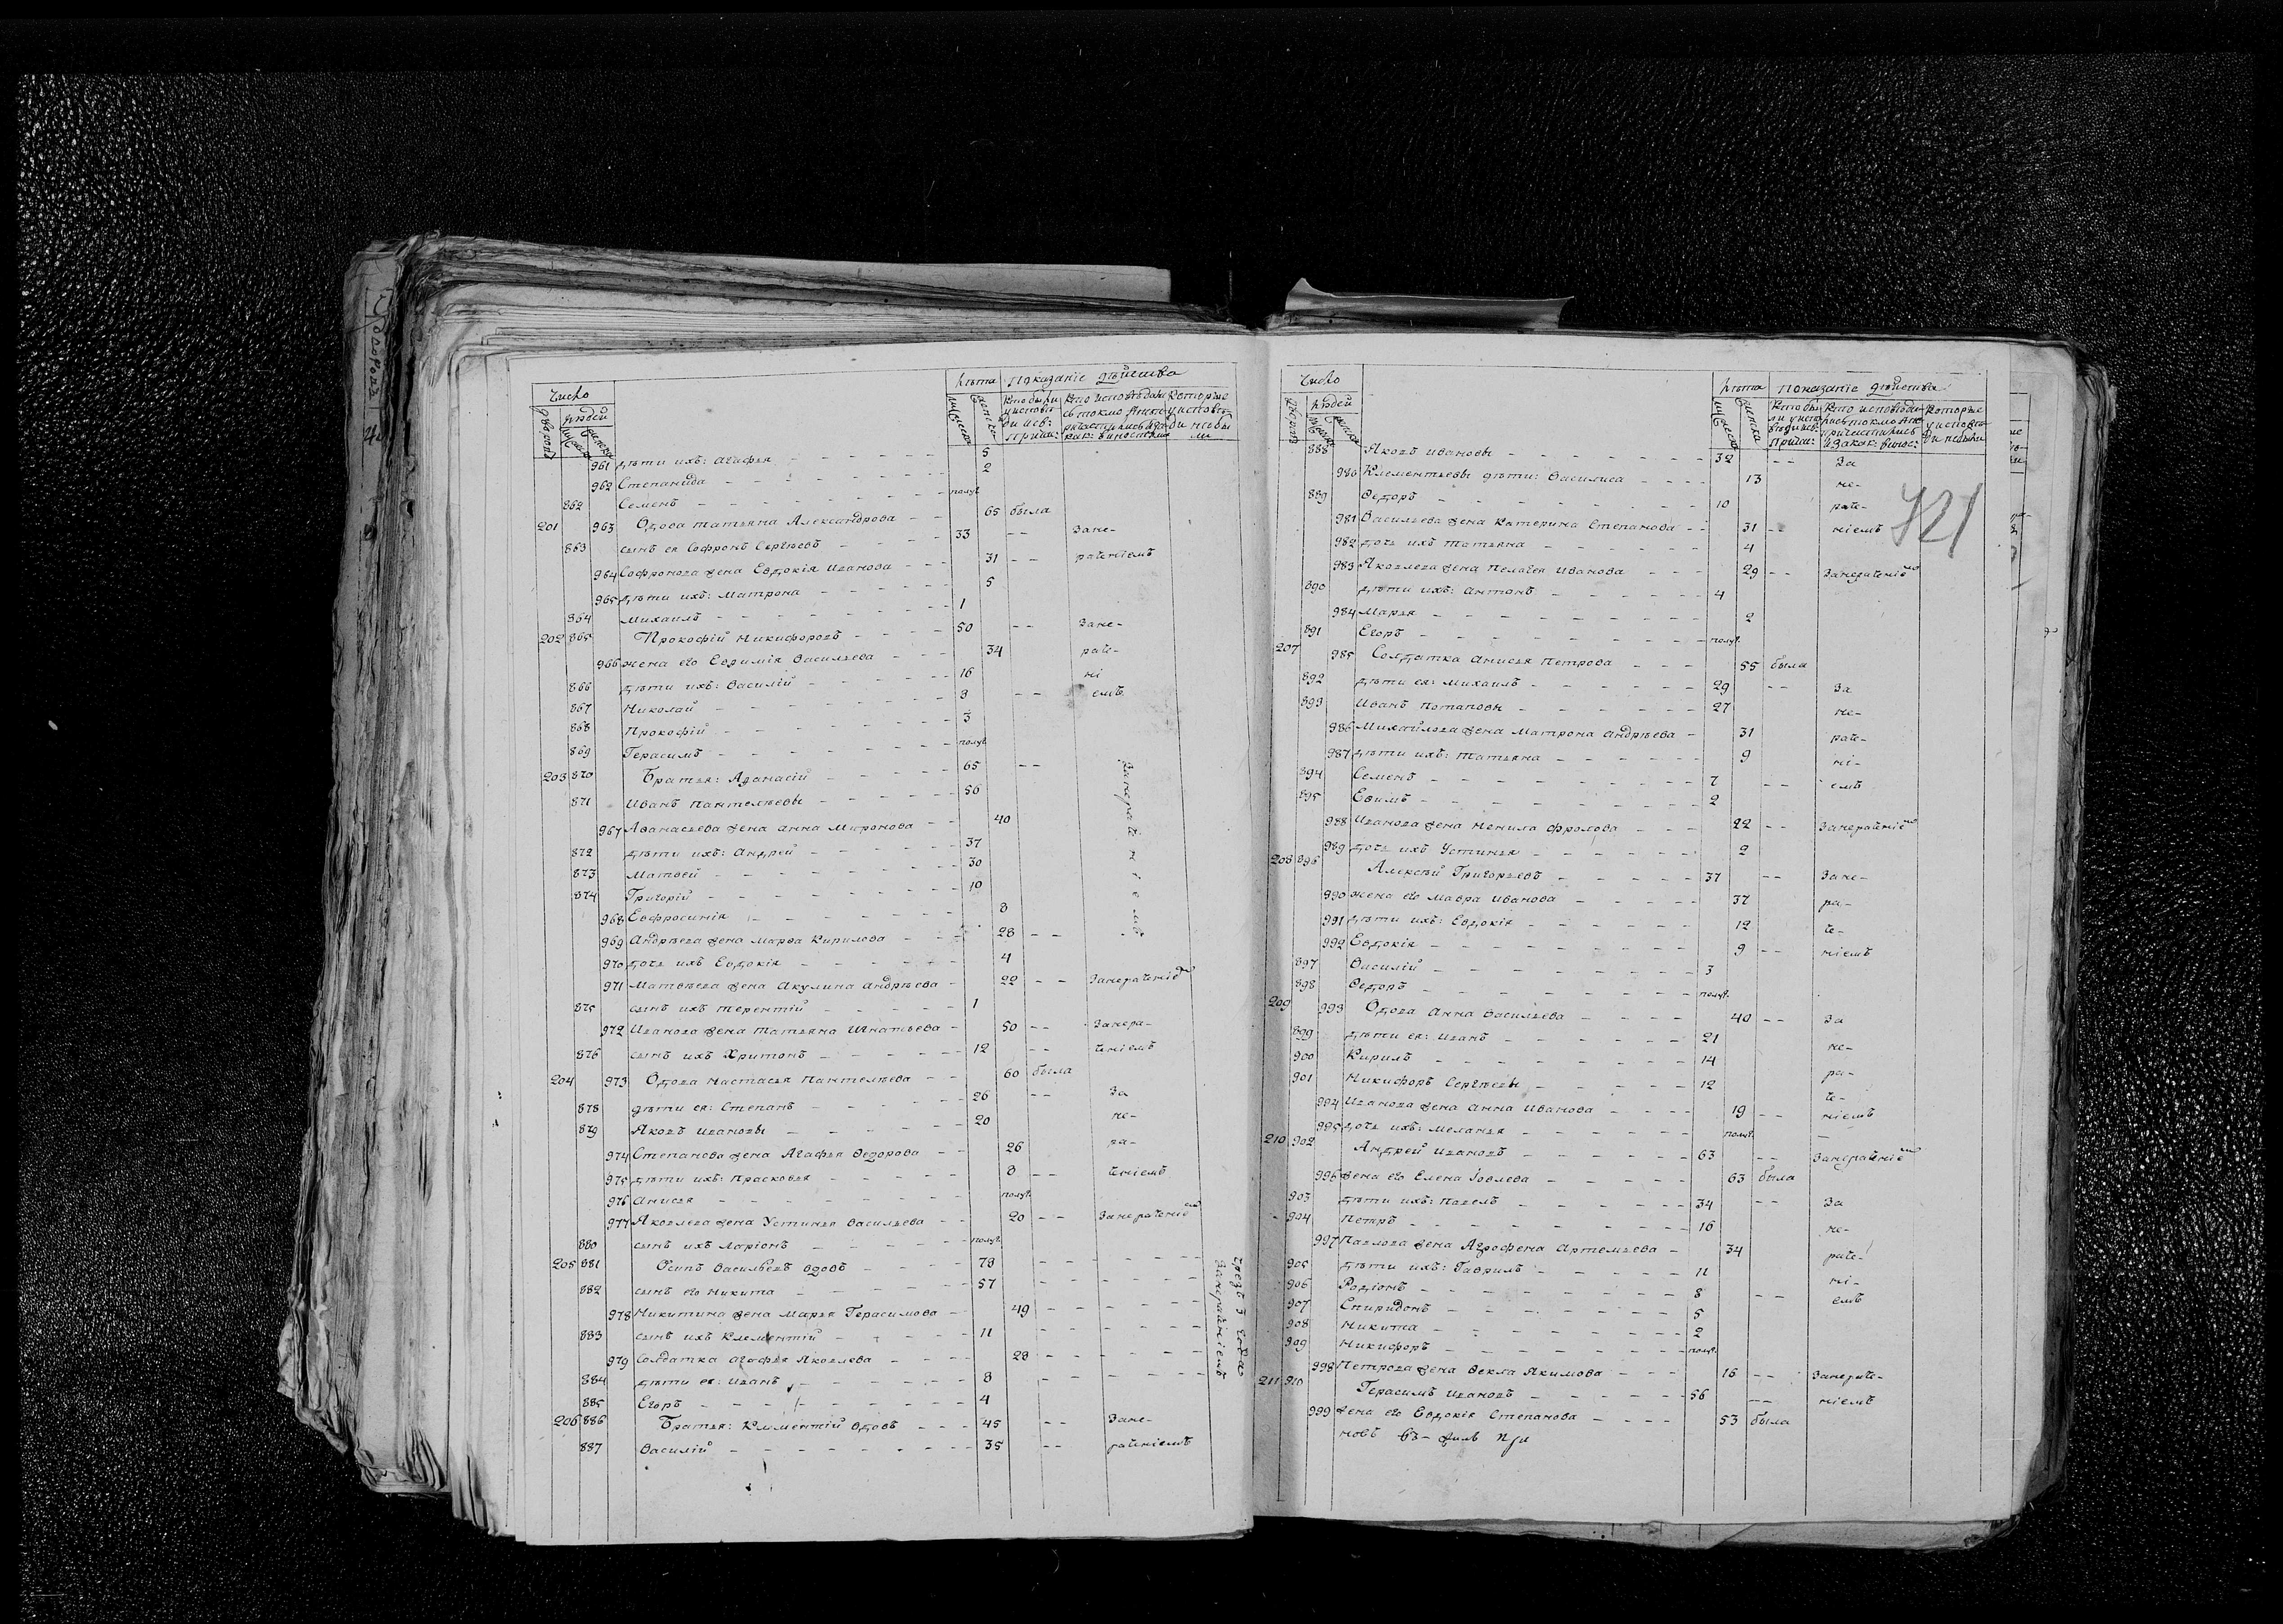 Число
Лѣта Показаніе дѣйства
дворовъ людей мужеска женска
961 дѣти ихъ: Агафья 5
962 Степанида 2
862 Семенъ полуг.
201 963 Вдова Татьяна Александрова 65 была
863 сынъ ея Софронъ Сергѣевъ 33 Зане-
964 Софронова жена Евдокія Иванова 31 раченіемъ
965 дѣти ихъ: Матрона 5
864 Михаилъ 1
202 865 Прокофій Никифоровъ 50 Зане-
966 жена его Евфимія Васильева 34 раче-
866 дѣти ихъ: Василій 16 ні
867 Николай 9 емъ
868 Прокофій 3
869 Герасимъ полуг.
203 870 Братья: Афанасій 65 Занераченіемъ
871 Иванъ Пантелѣевы 56
967 Афанасьева жена Анна Миронова 40
872 дѣти ихъ: Андрей 37
873 Матвей 30
874 Григорій 10
968 Евфросинія 8
969 Андрѣева жена Марфа Кирилова 28
970 дочь ихъ Евдокія 4
971 Матвѣева жена Акулина Андрѣева 22 Занераченіемъ
875 сынъ ихъ Терентій 1
972 Иванова жена Татьяна Игнатьева 50 Занера-
876 сынъ ихъ Харитонъ 12 ченіемъ
204 973 Вдова Настасья Пантелѣева 60 была
878 дѣти ея: Степанъ 26 За
879 Яковъ Ивановы 20 не-
974 Степанова жена Агафья Федорова 26 ра-
975 дѣти ихъ: Прасковья 8 ченіемъ
976 Анисья полуг.
977 Яковлева жена Устинья Васильева 20 Занераченіемъ
880 сынъ ихъ Ларіонъ полуг.
205 881 Осипъ Васильевъ вдовъ 79
882 сынъ его Никита 57
978 Никитина жена Марья Герасимова 49
883 сынъ ихъ Клементій 11
979 Солдатка Агафья Яковлева 28
884 дѣти ея: Иванъ 8
885 Егоръ 4
чрезъ 3 года
Занераченіемъ
206 886 Братья: Клементій вдовъ 45 Зане-
887 Василій 35 раченіемъ
Число
Лѣта Показаніе дѣйства
дворовъ людей мужеска женска
888 Яковъ Ивановы 32 За
980 Клементьевы дѣти: Василиса 13 не-
889 Федоръ 10 раче-
981 Васильева жена Катерина Степанова 31 ніемъ
721
982 дочь ихъ Татьяна 4
983 Яковлева жена Пелагея Иванова 29 Занераченіемъ
890 дѣти ихъ: Антонъ 4
984 Марья 2
891 Егоръ полуг.
207 985 Солдатка Анисья Петрова 55 была
892 дѣти ея: Михаилъ 29 За
893 Иванъ Потаповы 27 не-
986 Михайлова жена Матрона Андрѣева 31 раче-
987 дѣти ихъ: Татьяна 9 ні-
894 Семенъ 7 емъ
895 Ефимъ 2
988 Иванова жена Ненила Фролова 22 Занераченіемъ
989 дочь ихъ Устинья 2
208 896 Алексѣй Григорьевъ 37 Зане-
990 жена его Мавра Иванова 37 ра-
991 дѣти ихъ: Евдокія 12 че-
992 Евдокія 9 ніемъ
897 Василій 3
898 Федоръ полуг.
209 993 Вдова Анна Васильева 40 За
899 дѣти ея: Иванъ 21 не-
900 Кирилъ 14 ра-
901 Никифоръ Сергѣевы 12 че-
994 Иванова жена Анна Иванова 19 ніемъ
995 дочь ихъ: Меланья полуг.
210 902 Андрей Ивановъ 63 Занераченіемъ
996 жена его Елена Іовлева 63 была
903 дѣти ихъ: Павелъ 34 За
904 Петръ 16 не-
997 Павлова жена Аграфена Артемьева 34 раче-
905 дѣти ихъ: Гаврилъ 11 ні-
906 Родіонъ 8 емъ
907 Спиридонъ 5
908 Никита 2
909 Никифоръ полуг.
998 Петрова жена Фекла Якимова 16 Занераче-
211 910 Герасимъ Ивановъ 56 ніемъ
999 жена его Евдокія Степанова 53 была